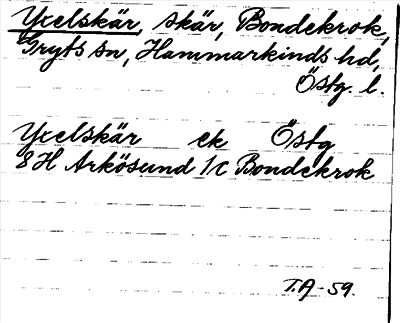 Yxelskär, skär, Bondekrok,
Gryts sn, Hammarkinds hd,
Östg. l.
Yxelskär ek Östg
8H Arkösund 1c Bondekrok
T.A-59.